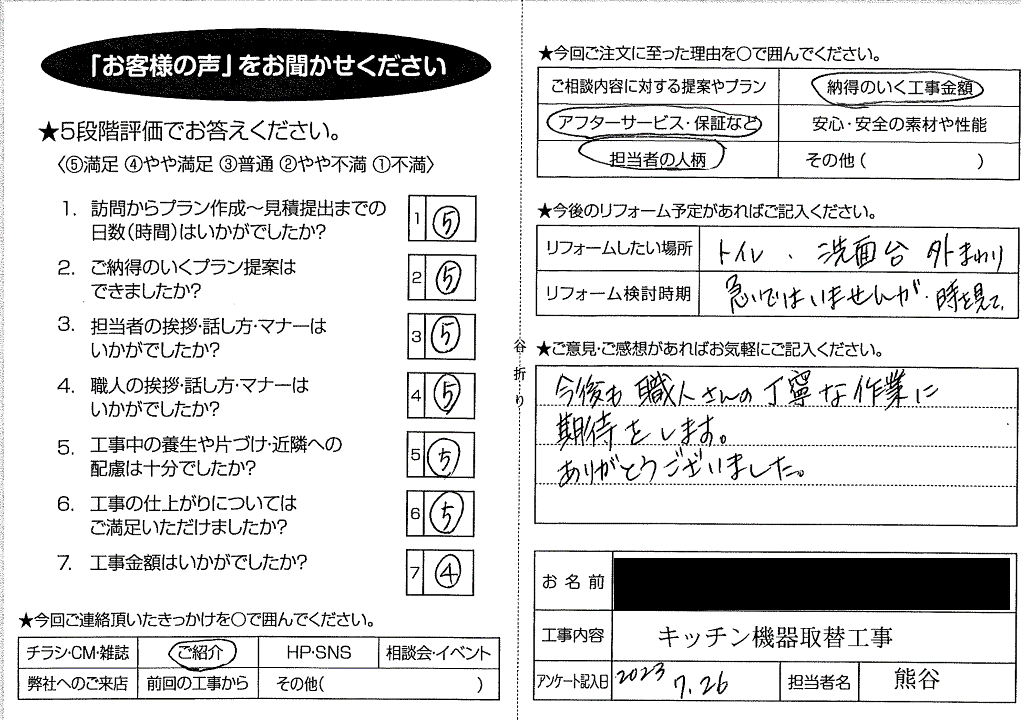 「お客様の声」をお聞かせください
★5段階評価でお答えください。
〈⑤満足 ④やや満足 ③普通 ②やや不満 ①不満〉
1. 訪問からプラン作成〜見積提出までの
日数(時間)はいかがでしたか?
1 ⑤
2. ご納得のいくプラン提案は
できましたか?
2 ⑤
3. 担当者の挨拶・話し方・マナーは
いかがでしたか?
3 ⑤
4. 職人の挨拶・話し方・マナーは
いかがでしたか?
4 ⑤
5. 工事中の養生や片づけ・近隣への
配慮は十分でしたか?
5 ⑤
6. 工事の仕上がりについては
ご満足いただけましたか?
6 ⑤
7. 工事金額はいかがでしたか?
7 ④
★今回ご連絡頂いたきっかけを○で囲んでください。
チラシ・CM・雑誌 ご紹介 HP・SNS 相談会・イベント
弊社へのご来店 前回の工事から その他( )
谷折り
★今回ご注文に至った理由を○で囲んでください。
ご相談内容に対する提案やプラン 納得のいく工事金額
アフターサービス・保証など 安心・安全の素材や性能
担当者の人柄 その他( )
★今後のリフォーム予定があればご記入ください。
リフォームしたい場所 トイレ 、洗面台 外まわり
リフォーム検討時期 急いではいませんが、時を見て、
★ご意見・ご感想があればお気軽にご記入ください。
今後も職人さんの丁寧な作業に
期待をします。
ありがとうございました。
お名前
工事内容 キッチン機器取替工事
アンケート記入日 2023 7.26 担当者名 熊谷